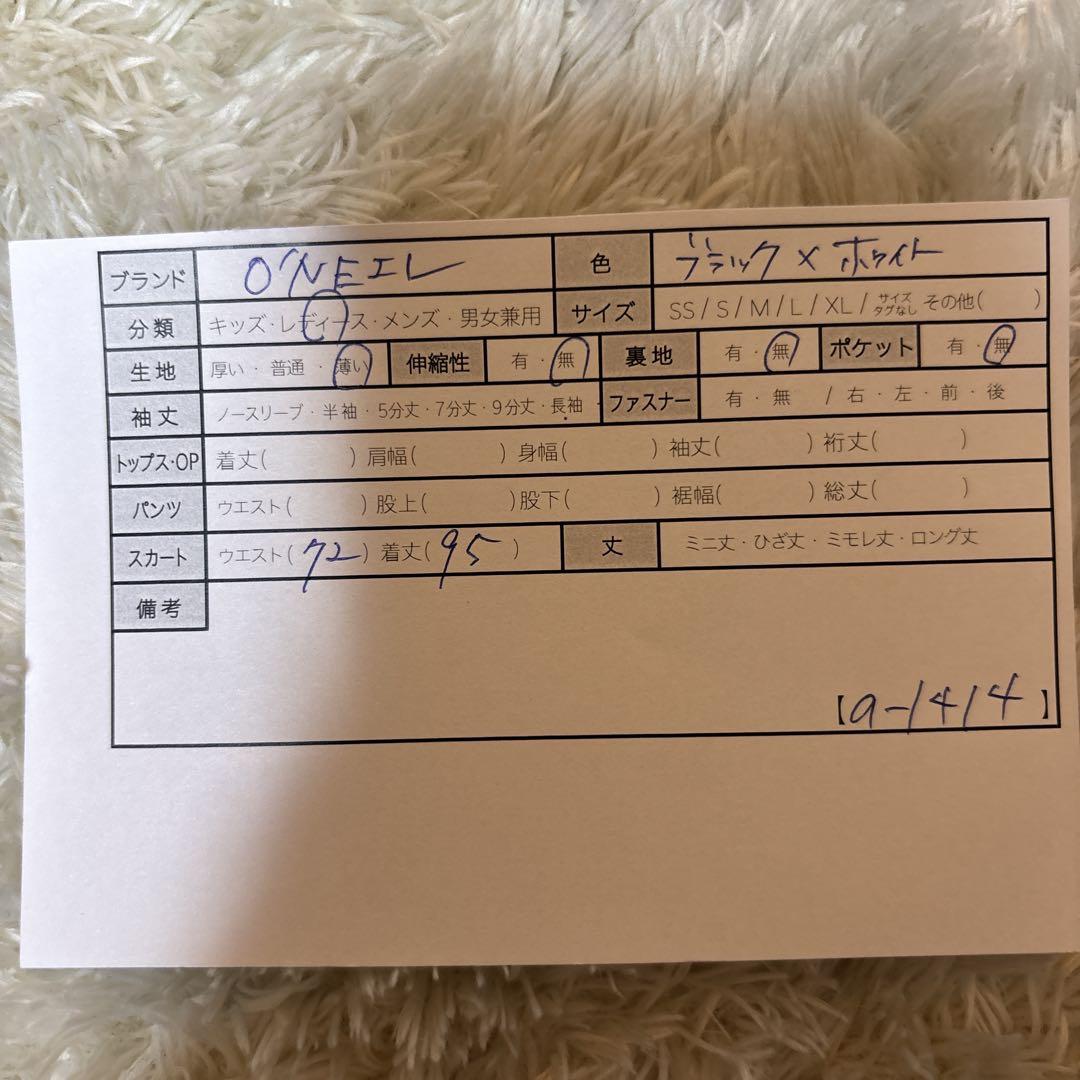 ブランド O'NEIL 色 ブラック×ホワイト
分類 キッズ・レディース・メンズ・男女兼用 サイズ SS/S/M/L/XL/サイズタグなし その他( )
生地 厚い・普通・薄い 伸縮性 有・無 裏地 有・無 ポケット 有・無
袖丈 ノースリーブ・半袖・5分丈・7分丈・9分丈・長袖・ ファスナー 有・無 /右・左・前・後
トップス・OP 着丈( )肩幅( )身幅( )袖丈( )裄丈( )
パンツ ウエスト( )股上( )股下( )裾幅( )総丈( )
スカート ウエスト(72)着丈(95) 丈 ミニ丈・ひざ丈・ミモレ丈・ロング丈
備考
【a-1414】